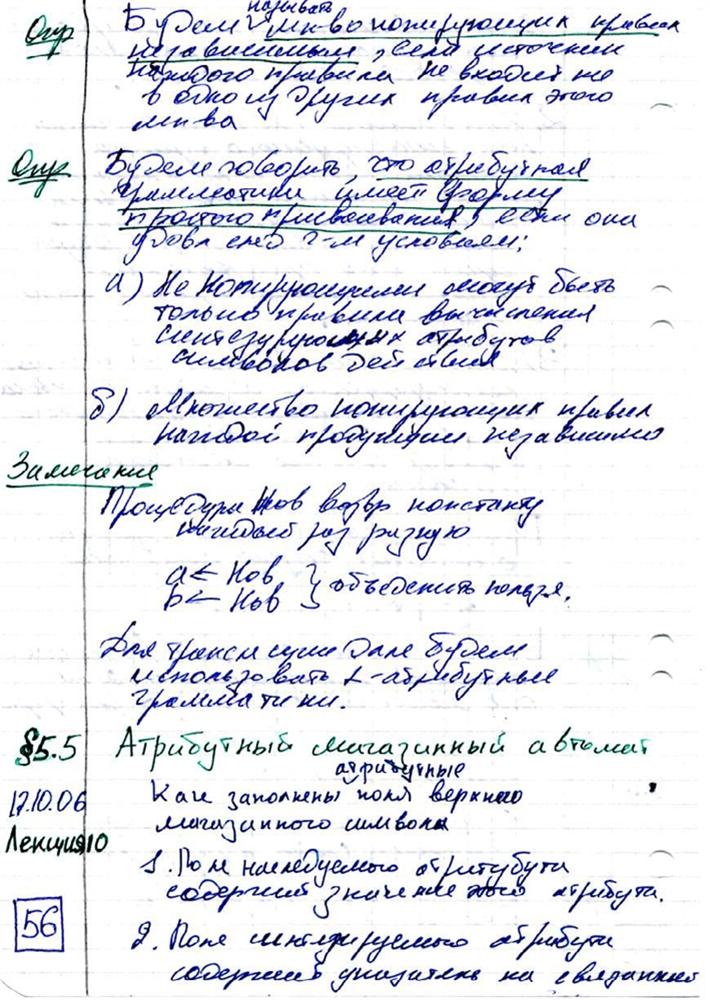 Опр Будем называть мн-во копирующих правил
независимым, если источник
каждого правила не входит не
в одно из других правил этого
мн-ва
Опр Будем говорить, что атрибутная
грамматики имеет форму
простого присваивания, если они
удовл след 2-м условиям:
а) Не копирующими могут быть
только правила вычисления
синтезирующих атрибутов
символов действия
б) Множество копирующих правил
каждой продукции независимо
Замечание
Процедура Нов возвр константу
каждый раз разную
a ← Нов
b ← Нов } объеденить нельзя.
Для трансл
использовать L-атрибутные
грамматики.
§5.5 Атрибутный магазинный автомат
17.10.06 Как заполнены атрибутные поля верхнего
Лекция 10 магазинного символа
1. Поле наследуемого атритубута
содержит значение этого атрибута.
56 2. Поле синтезируемого атрибута
содержит указатель на связанный